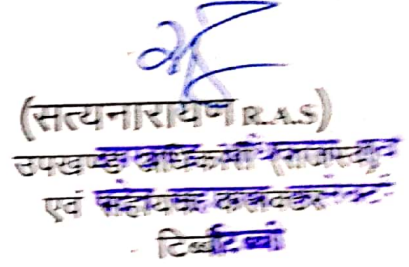 (सत्यनारायण R.A.S)
उपखण्ड अधिकारी
एवं सहायक कलक्टर
टिब्बी